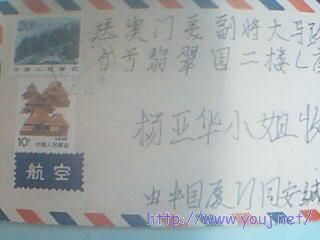 20分
中国人民邮政
10分
中国人民邮政
航空
澳门美副将大马路
号翡翠园二楼L
杨亚华小姐收
由中国厦门同安缄
http://www.youj.net/